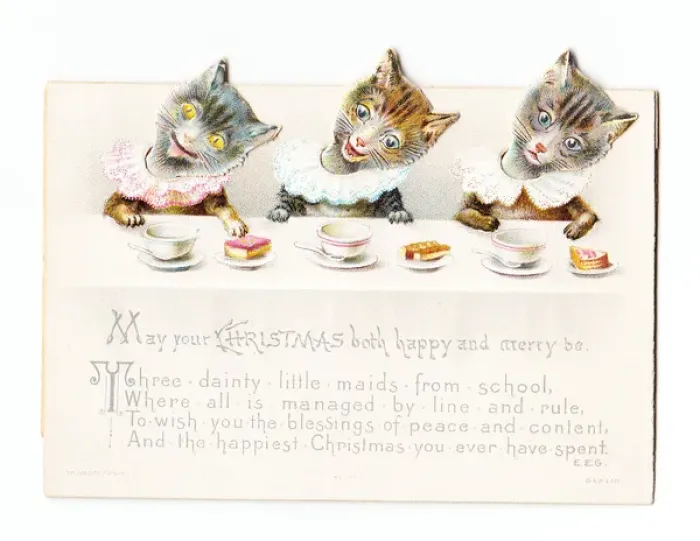 May your CHRISTMAS both happy and merry be.
Three · dainty · little · maids · from · school,
Where · all · is · managed · by · line · and · rule,
To · wish · you · the · blessings · of · peace · and · content,
And · the · happiest · Christmas · you · ever · have · spent.
E.E.G.